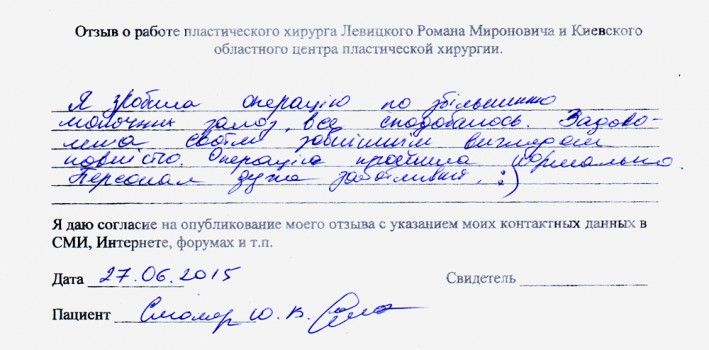 Отзыв о работе пластического хирурга Левицкого Романа Мироновича и Киевского
областного центра пластической хирургии.
Я зробила операцію по збільшенню
молочних залоз, все сподобалось. Задово-
лена своїм зовнішнім виглядом
повністю. Операція пройшла нормально.
Персонал дуже заботливий. :)
Я даю согласие на опубликование моего отзыва с указанием моих контактных данных в
СМИ, Интернете, форумах и т.п.
Дата 27.06.2015 Свидетель
Пациент Ю. В.